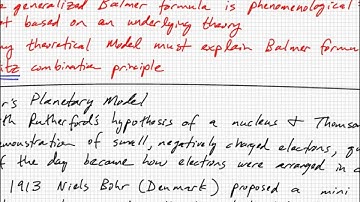 generalized Balmer formula is phenomenological
not based on an underlying theory
any theoretical Model must explain Balmer formu
Ritz combination principle
r's Planetary Model
th Rutherford's hypothesis of a nucleus & Thomson
demonstration of small, negatively charged electrons, qu
f the day became how electrons were arranged in
1913 Niels Bohr (Denmark) proposed a mini